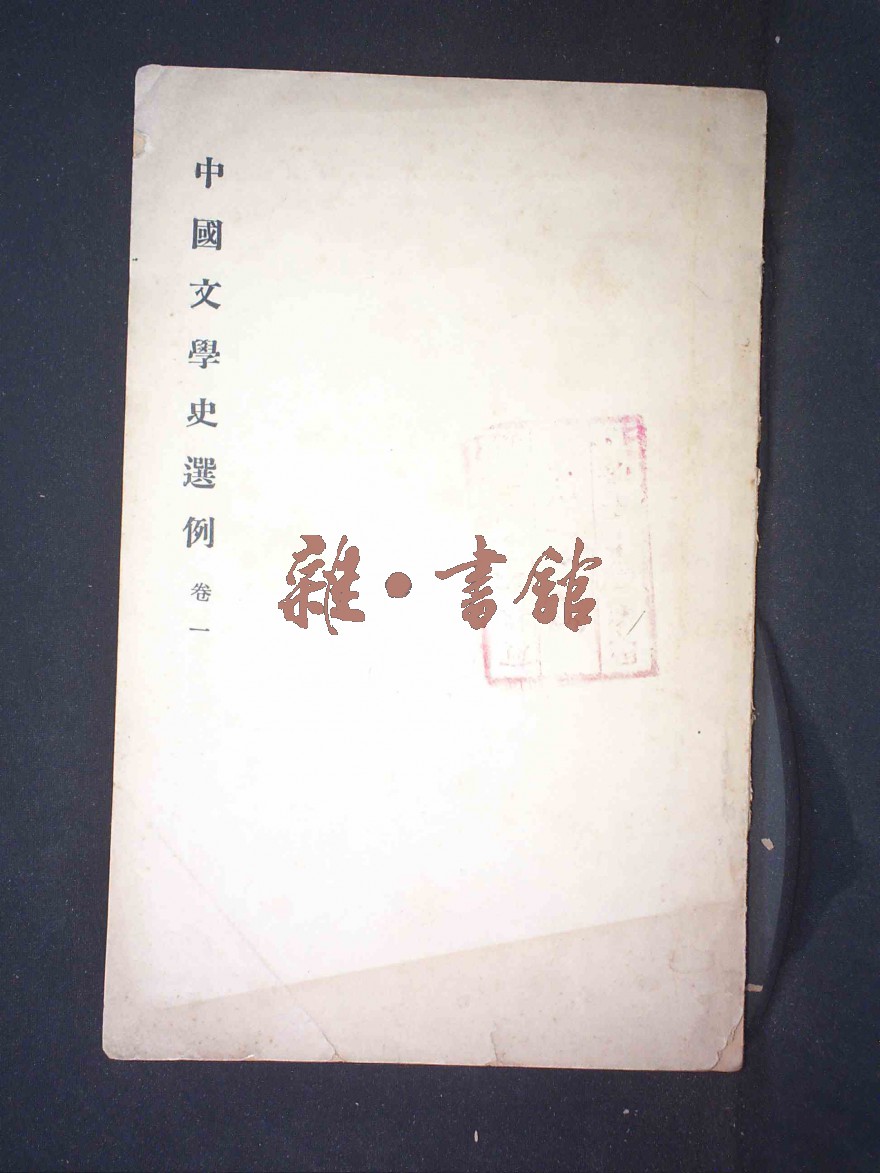 中國文學史選例 卷一
雜·書館